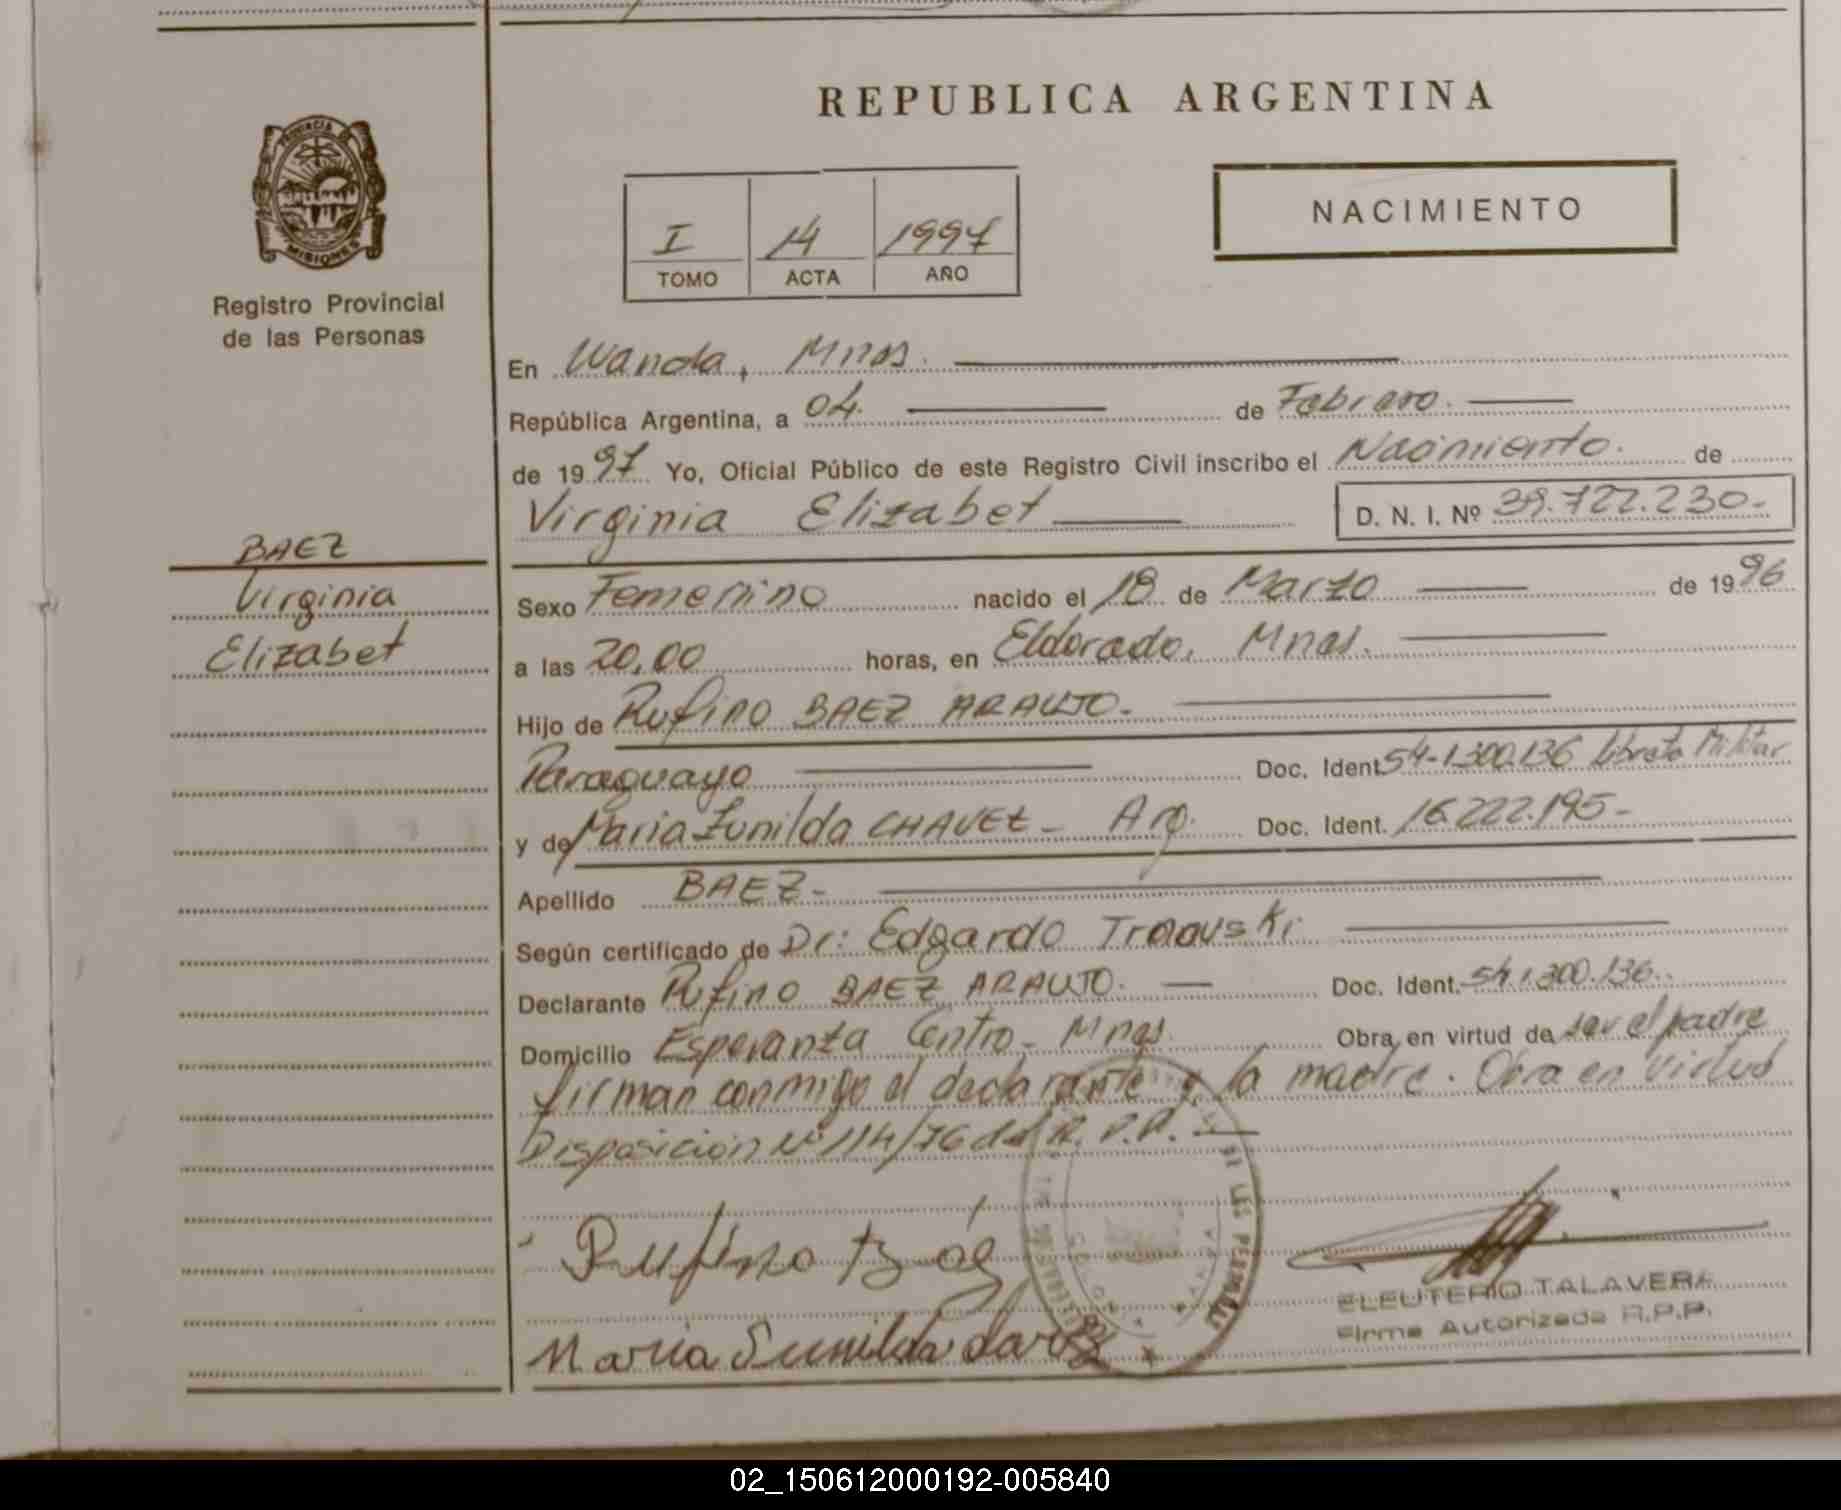 REPUBLICA ARGENTINA
PROVINCIA DE
MISIONES
Registro Provincial
de las Personas
I 14 1997
TOMO ACTA AÑO
NACIMIENTO
En Wanda, Mnas.
República Argentina, a 04. de Febrero.
de 19 97 Yo, Oficial Público de este Registro Civil inscribo el Nacimiento. de
Virginia Elizabet D. N. I. Nº 39.722.230.-
BAEZ
Virginia
Elizabet
Sexo Femenino nacido el 18 de Marzo de 19 96
a las 20,00 horas, en Eldorado, Mnas.
Hijo de Rufino BAEZ ARAUJO.
Paraguayo Doc. Ident. 54-1300.136 libreta Militar
y de Maria Zunilda CHAVEZ - Arg. Doc. Ident. 16.222.195-
Apellido BAEZ-
Según certificado de Dr: Edgardo
Declarante Rufino BAEZ ARAUJO. Doc. Ident. 54.1.300.136.
Domicilio Esperanza Centro - Mnas. Obra en virtud de ser el padre
firman conmigo el declarante y la madre. Obra en virtud
Disposición Nº 114/76 del R. P. P.
Rufino
Maria Sunilda
ELEUTERIO TALAVERA
Firma Autorizada R.P.P.
DE LAS PERSONAS
02_150612000192-005840